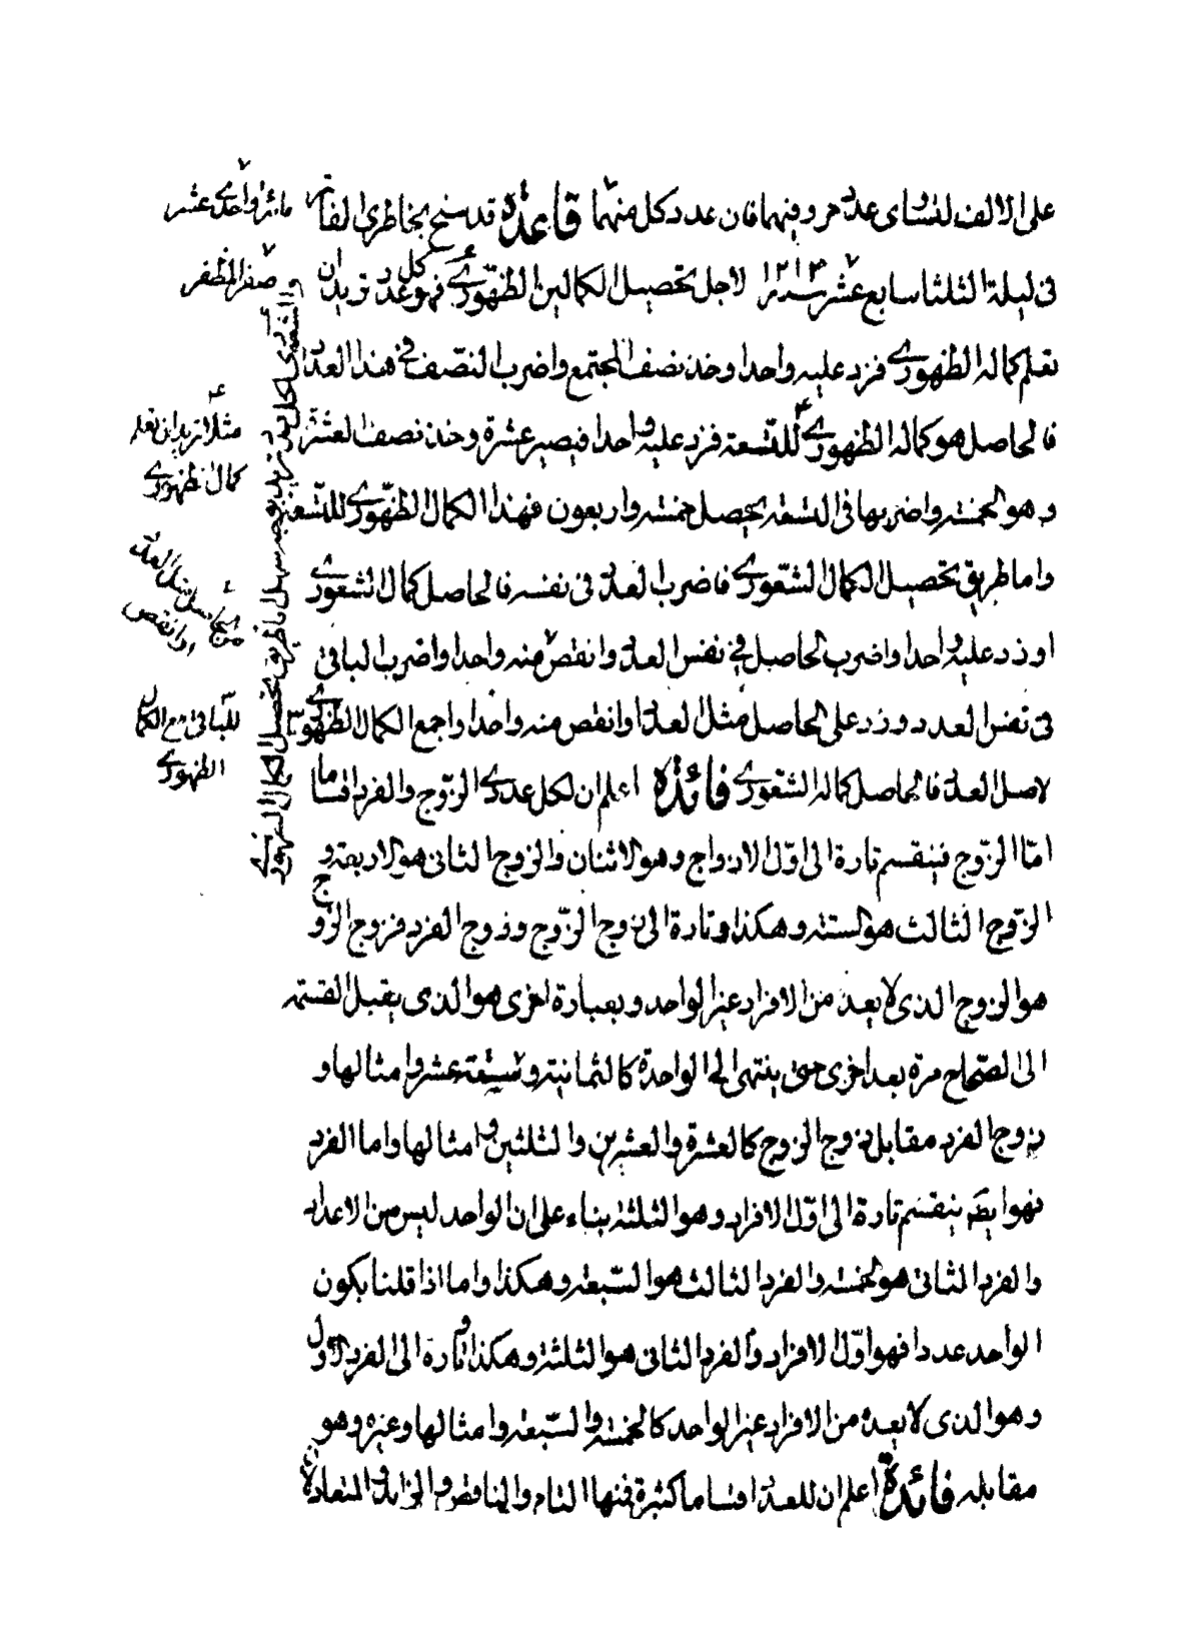 على الالف لتساوى عدد حروفهما فان عدد كل منهما قاعدة قد سنح بخاطرى الفاتر
فى ليلة الثلثا سابع عشر ١٢١٣ لاجل تحصيل الكمالين الظهورى فهو كل عدد تريد ان
تعلم كماله الظهورى فزد عليه واحدا وخذ نصف المجتمع واضرب النصف فى هذا العدد
فالحاصل هو كماله الظهورى للتسعة فزد عليه واحدا فيصير عشرة وخذ نصف العشرة
وهو الخمسة واضربها فى التسعة يحصل خمسة واربعون فهذا الكمال الظهورى للتسعة
واما طريق تحصيل الكمال الشعورى فاضرب العدد فى نفسه فالحاصل كمال الشعورى
او زد عليه واحدا واضرب الحاصل فى نفس العدد وانقص منه واحدا واضرب الباقى
فى نفس العدد وزد على الحاصل مثل العدد او انقص منه واحدا واجمع الكمال الظهورى
لاصل العدد فالحاصل كماله الشعورى فائدة اعلم ان لكل عددى الزوج والفرد اقساما
امّا الزوج فينقسم تارة الى اوّل الازواج وهو الاثنان والزوج الثانى هو الاربعة و
الزوج الثالث هو الستة وهكذا وتارة الى زوج الزوج وزوج الفرد فزوج الزوج
هو الزوج الذى لا يعده من الافراد غير الواحد وبعبارة اخرى هو الذى يقبل القسمة
الى الصحاح مرة بعد اخرى حتى ينتهى الى الواحدة كالثمانية وستة عشر وامثالها و
زوج الفرد مقابل زوج الزوج كالعشرة والعشرين والثلثين وامثالها واما الفرد
فهو ايضا ينقسم تارة الى اوّل الافراد وهو الثلثة بناء على ان الواحد ليس من الاعداد
والفرد الثانى هو الخمسة والفرد الثالث هو السبعة وهكذا واما اذا قلنا بكون
الواحد عددا فهو اوّل الافراد والفرد الثانى هو الثلثة وهكذا وتارة الى الفرد الاول
وهو الذى لا يعده من الافراد غير الواحد كالخمسة والسبعة وامثالها وغيره وهو
مقابله فائدة اعلم ان للعدد اقساما كثيرة فمنها التام والناقص والزايد والمتعادلان
مائة واحدى عشر
صفر المظفر
مثلا تريد ان تعلم
كمال ظهورى
مثل العدد
او انقص
للباقى مع الكمال
الظهورى
والشعورى لكل عدد تريد سهل فاطريق تحصيل الكمال الظهورى